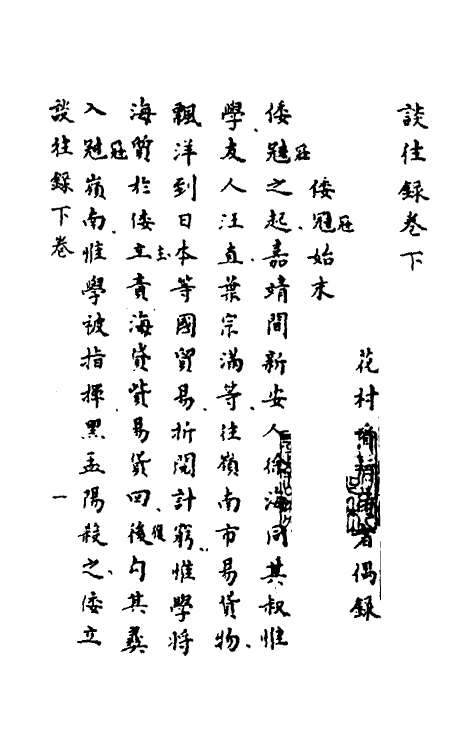 談往録卷下
花村看行侍者偶録
倭寇始末
倭寇之起嘉靖間新安人徐海同其叔惟
學友人汪直葉宗滿等往嶺南市易貨物
飄洋到日本等國貿易折閱計窮惟學將
海質於倭主責海貸貲易貨回後勾其夥
入寇嶺南惟學被指揮黑孟陽殺之倭立
談往録下卷 一